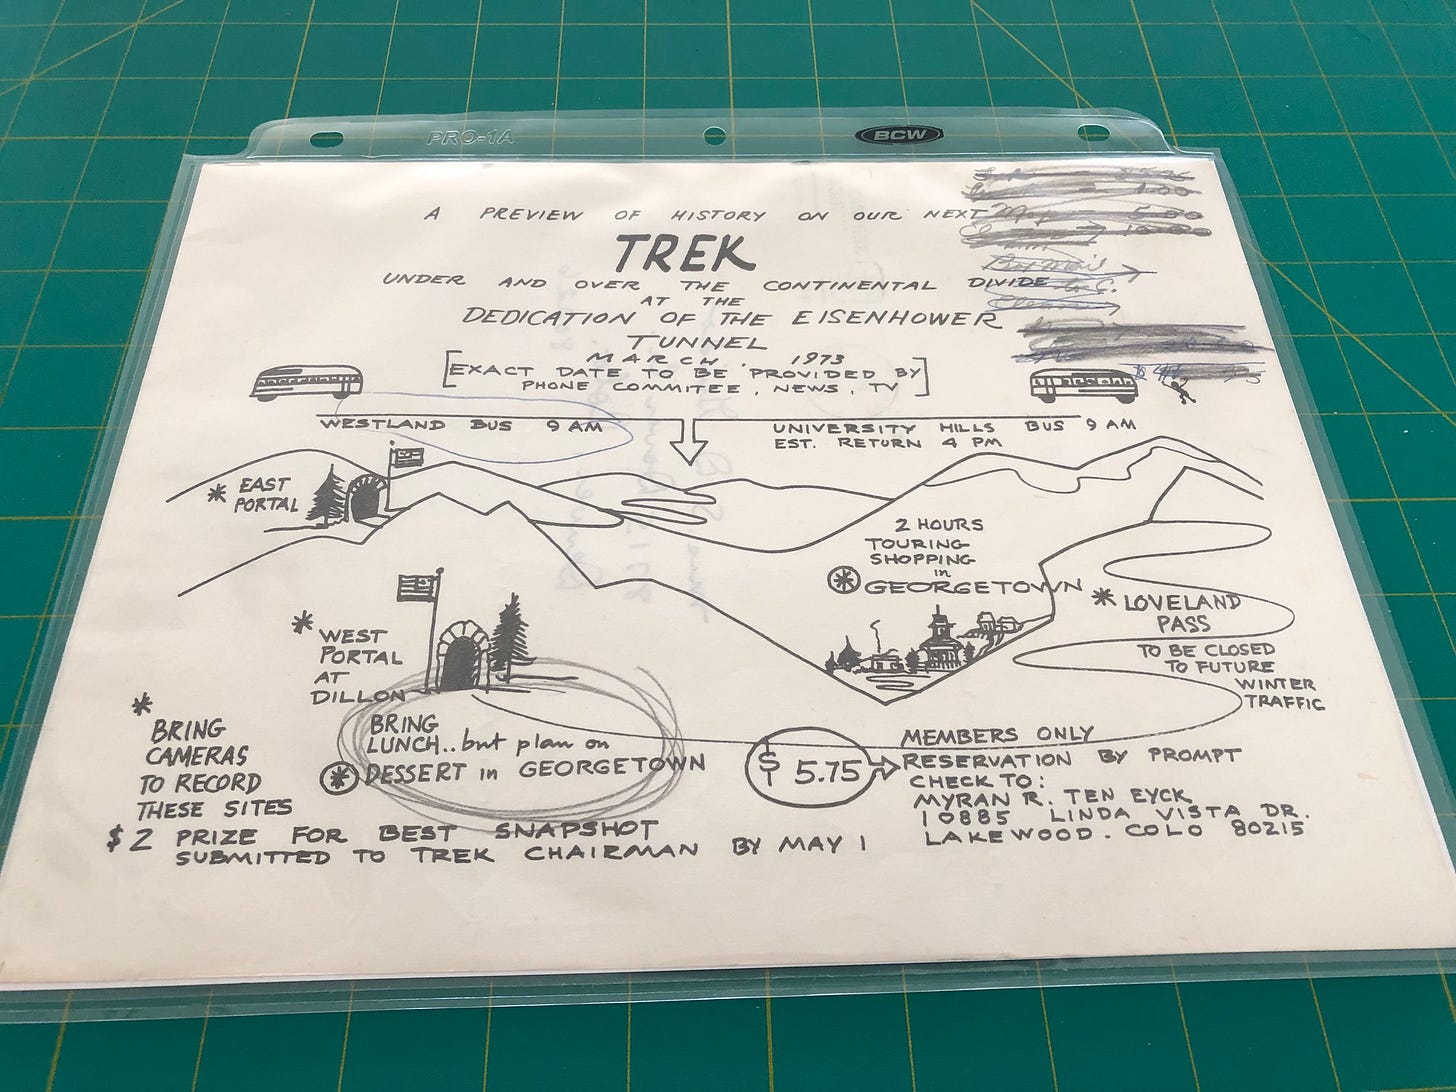 PRO-1A
BCW
A PREVIEW OF HISTORY ON OUR NEXT
TREK
UNDER AND OVER THE CONTINENTAL DIVIDE
AT THE
DEDICATION OF THE EISENHOWER
TUNNEL
MARCH, 1973
[EXACT DATE TO BE PROVIDED BY
PHONE COMMITEE, NEWS, TV]
WESTLAND BUS 9 AM
UNIVERSITY HILLS BUS 9 AM
EST. RETURN 4 PM
* EAST
PORTAL
2 HOURS
TOURING
SHOPPING
in
* GEORGETOWN
* LOVELAND
PASS
TO BE CLOSED
TO FUTURE
WINTER
TRAFFIC
* WEST
PORTAL
AT
DILLON
* BRING
CAMERAS
TO RECORD
THESE SITES
BRING
LUNCH..but plan on
* DESSERT in GEORGETOWN
$2 PRIZE FOR BEST SNAPSHOT
SUBMITTED TO TREK CHAIRMAN BY MAY 1
$5.75
MEMBERS ONLY
RESERVATION BY PROMPT
CHECK TO:
MYRAN R. TEN EYCK
10885 LINDA VISTA DR.
LAKEWOOD. COLO 80215